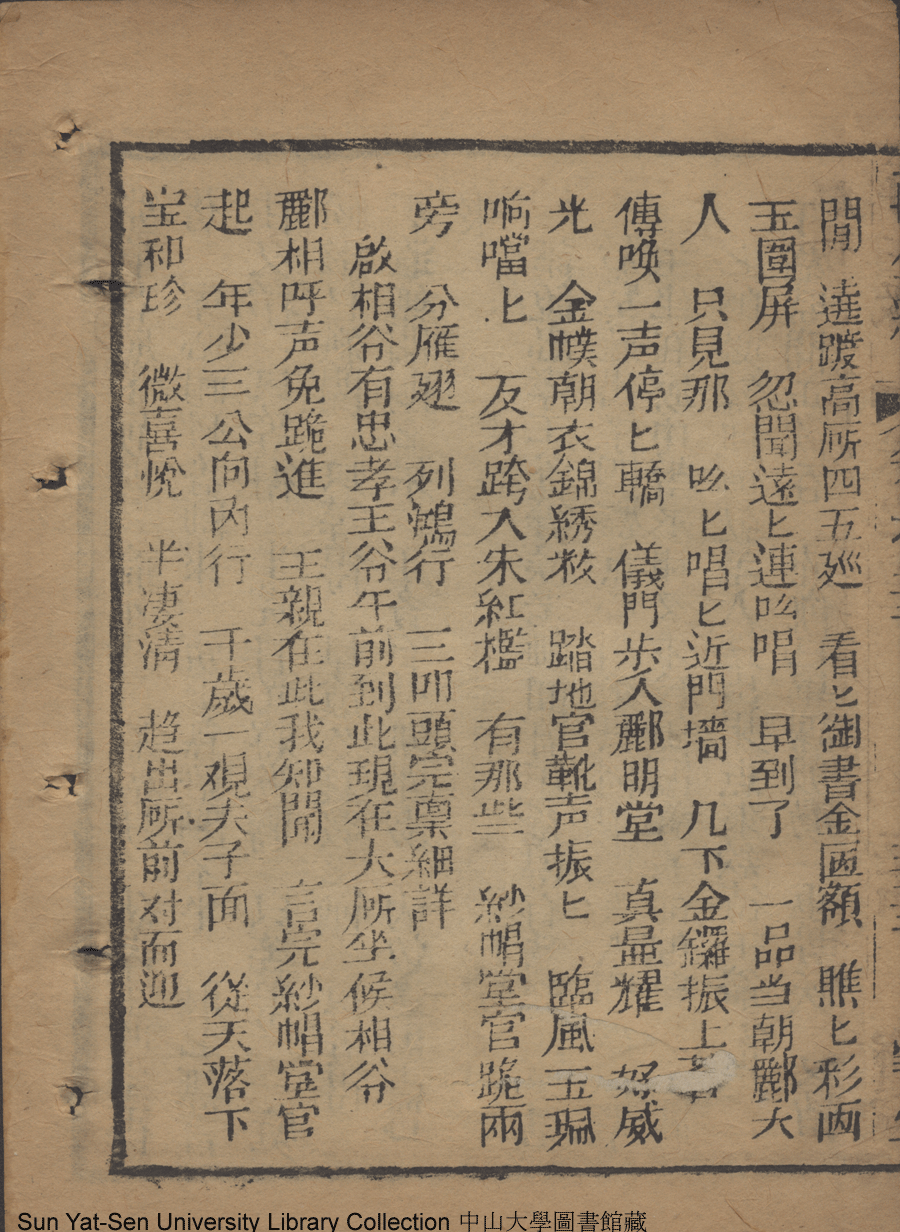 閒 遶踱高厛四五廵 看匕御書金匾額 瞧匕彩画
玉圍屏 忽聞遠匕連吆唱 早到了 一品当朝酈大
人 只見那 吆匕唱匕近門墻 几下金鑼振上
傳喚一声停匕轎 儀門步入酈明堂 真显耀 好威
光 金幞朝衣錦綉 踏地官靴声振匕 臨風玉珮
响噹匕 反才跨入朱紅檻 有那些 紗帽堂官跪兩
旁 分雁翅 列鵷行 三叩頭完禀細詳
啟相谷有忠孝王谷午前到此現在大厛坐候相谷
酈相呼声免跪進 王親在此我知聞 言完紗帽堂官
起 年少三公向内行 千歲一覌夫子面 從天落下
宝和珍 微喜悅 半凄清 趋出厛前对面迎
Sun Yat-Sen University Library Collection 中山大學圖書館藏